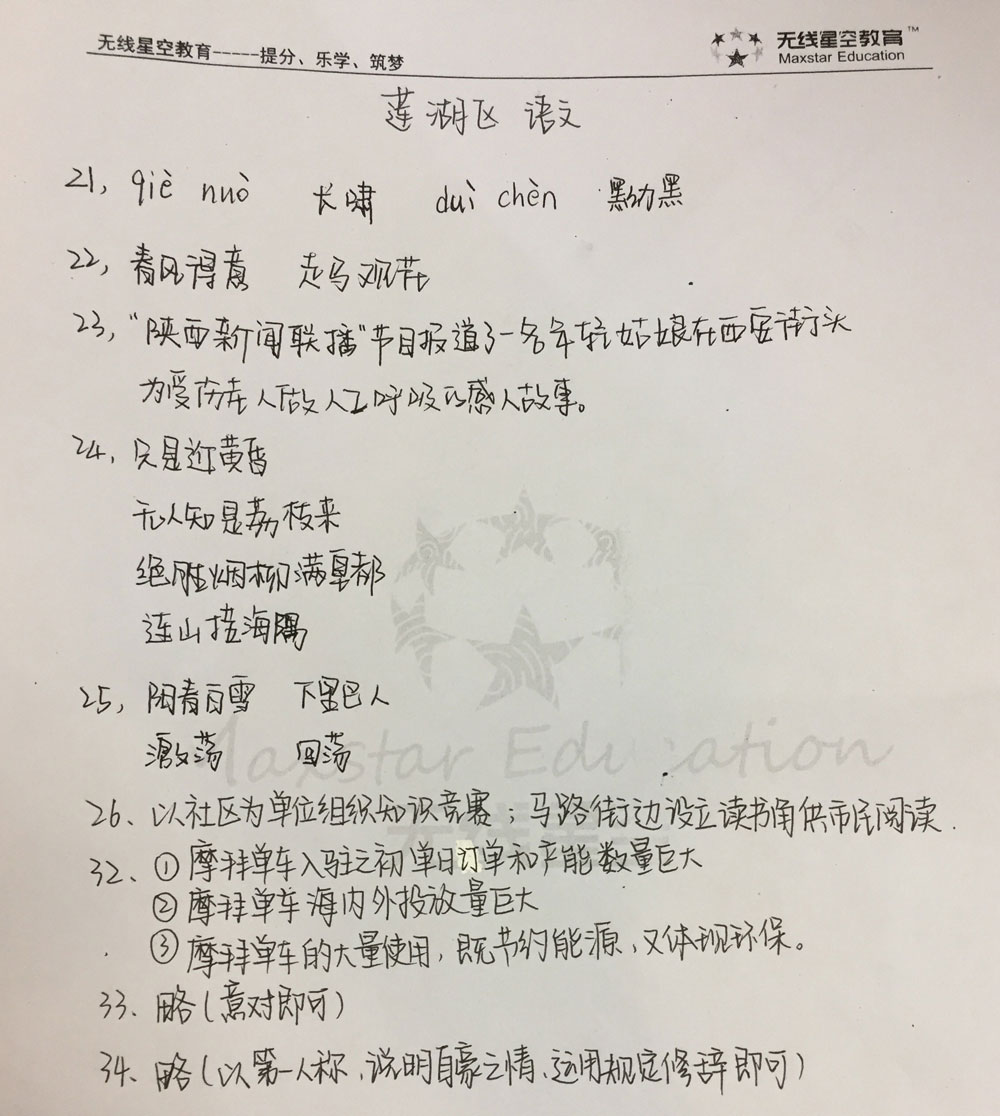 无线星空教育-----提分、乐学、筑梦
无线星空教育™
Maxstar Education
莲湖区 语文
21, qiè nuò 长啸 duì chèn 黑幼黑
22, 春风得意 走马观花
23, "陕西新闻联播"节目报道了一名年轻姑娘在西安街头
为受伤老人做人工呼吸的感人故事。
24, 只是近黄昏
无人知是荔枝来
绝胜烟柳满皇都
连山接海隅
25, 阳春白雪 下里巴人
激荡 回荡
Maxstar Education
26、以社区为单位组织知识竞赛；马路街边设立读书角供市民阅读.
32、①摩拜单车入驻之初单日订单和产能数量巨大
②摩拜单车海内外投放量巨大
③摩拜单车的大量使用，既节约能源，又体现环保。
33、略(意对即可)
34、略(以第一人称、说明自豪之情、运用规定修辞即可)